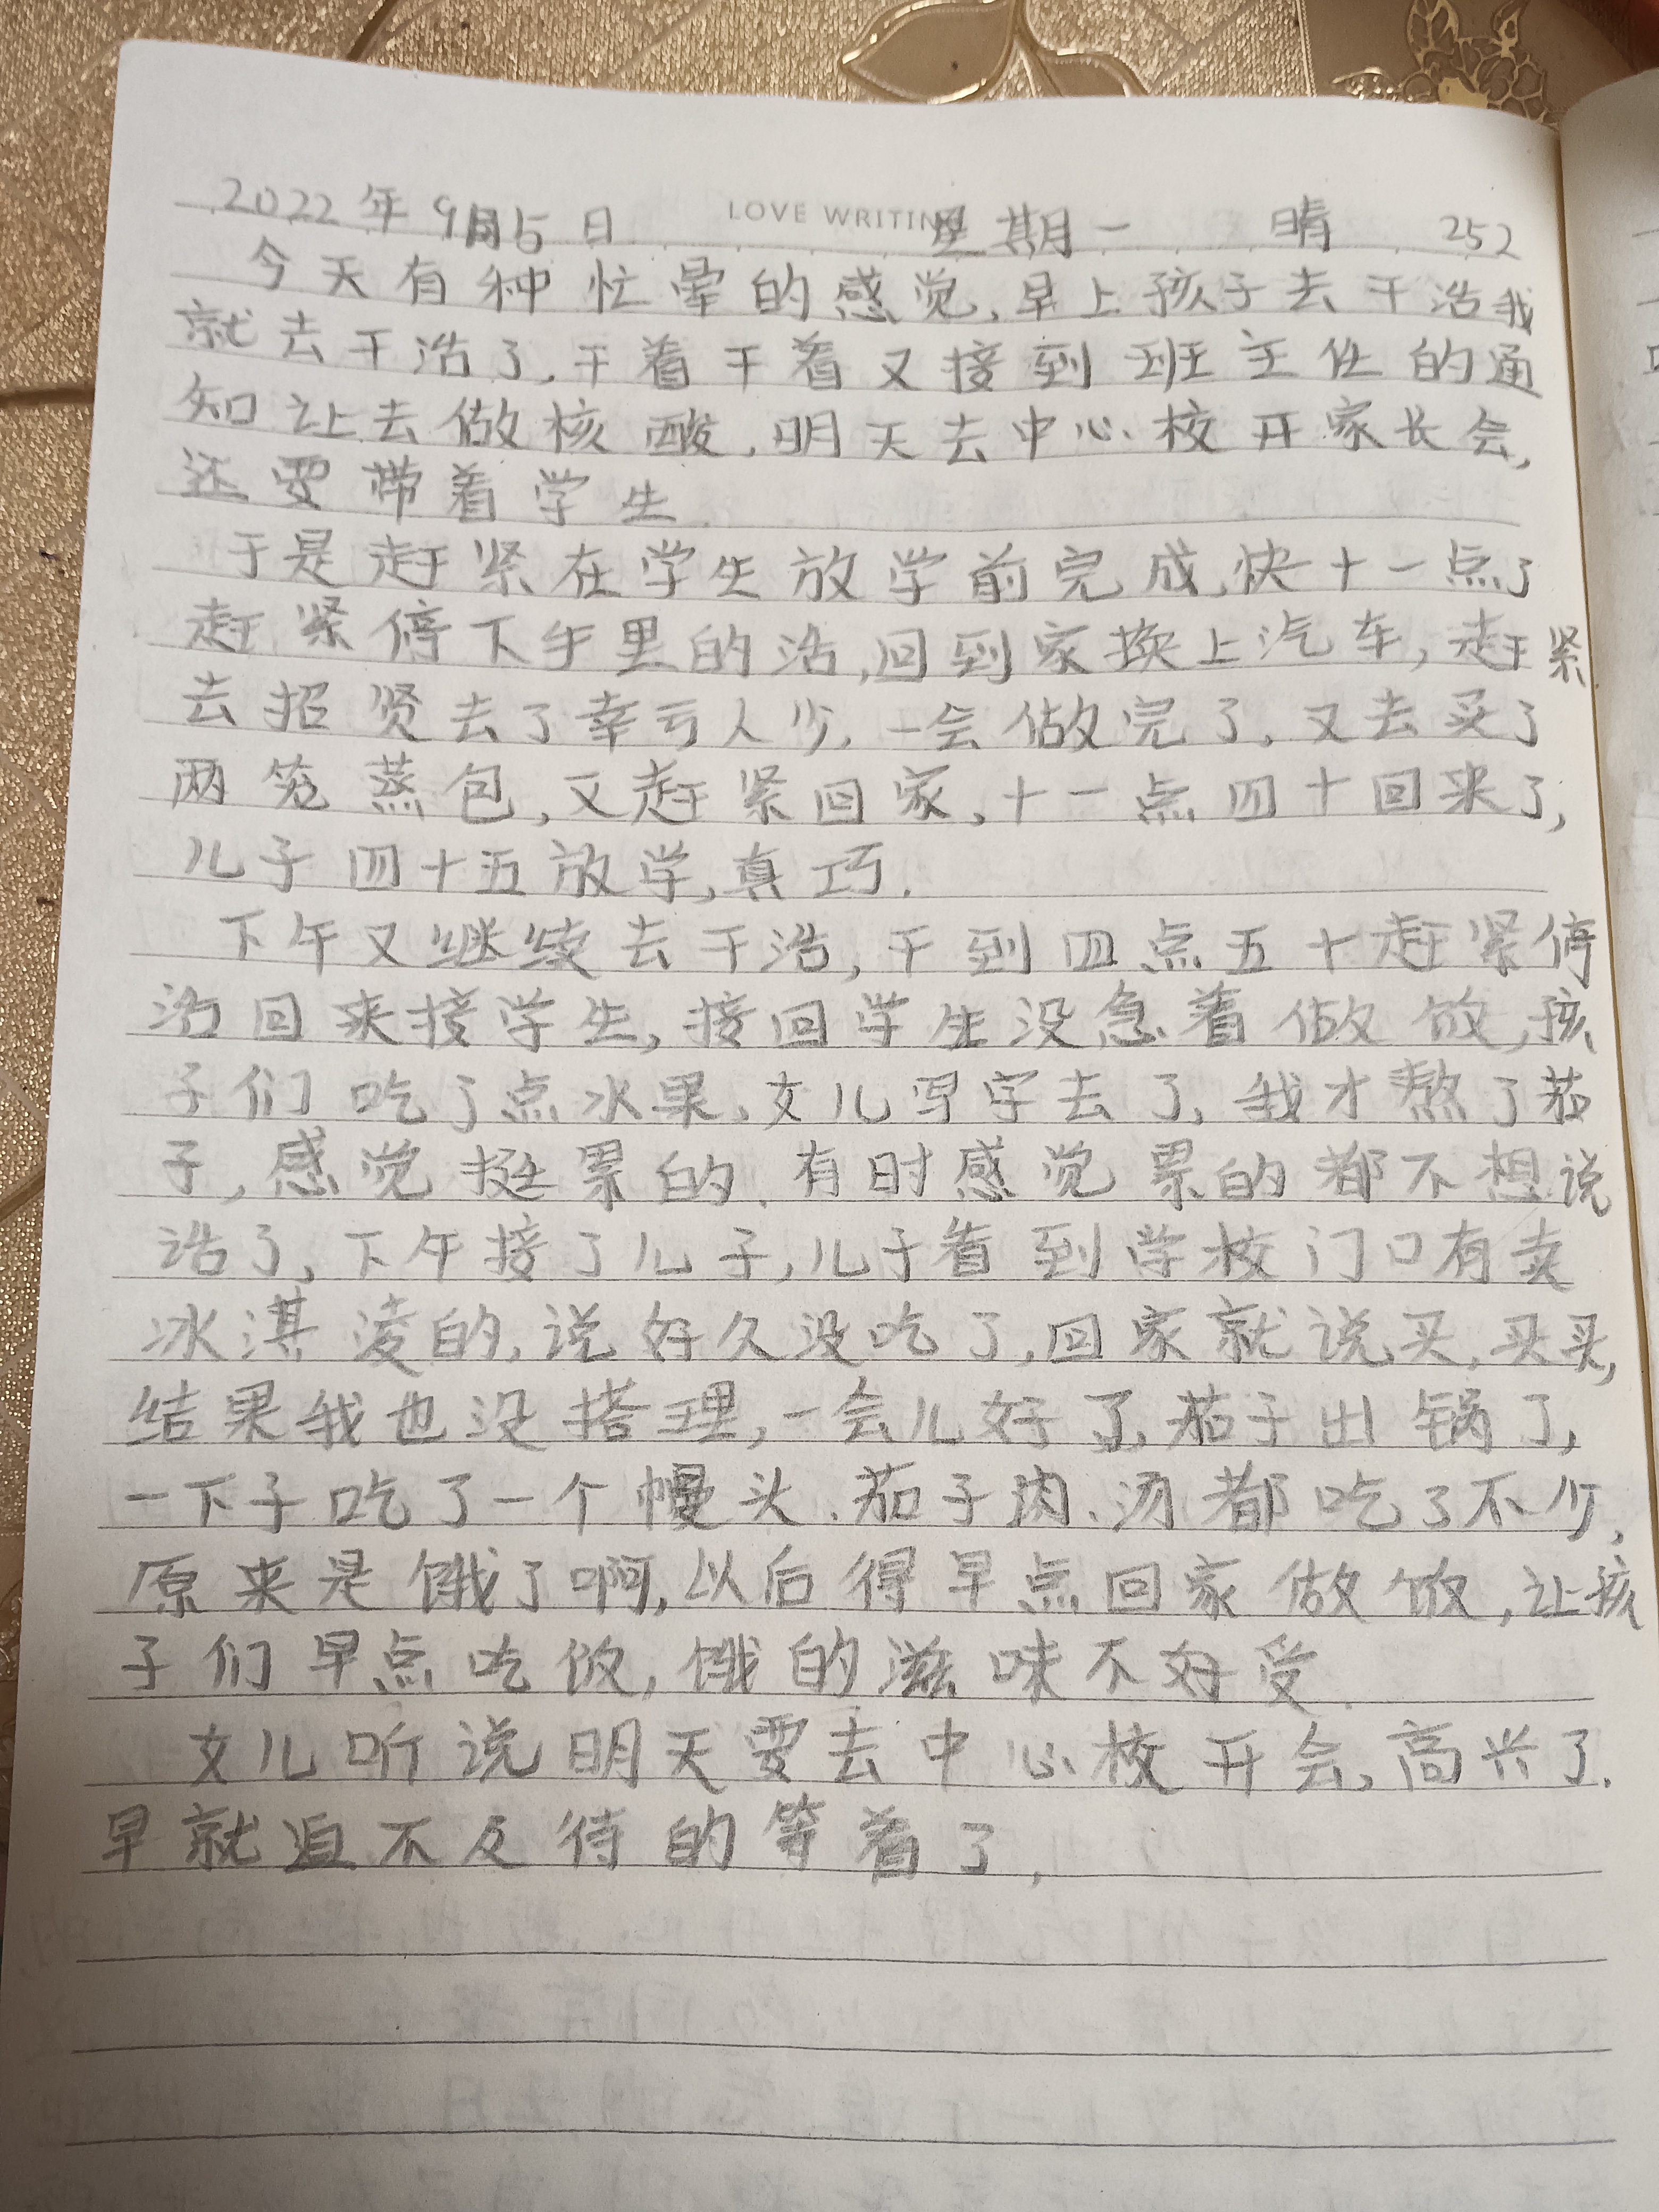 LOVE WRITIN
2022年9月5日 星期一 晴 252
今天有种忙晕的感觉,早上孩子去干活我
就去干活了,干着干着又接到班主任的通
知让去做核酸,明天去中心校开家长会,
还要带着学生.
于是赶紧在学生放学前完成,快十一点了
赶紧停下手里的活,回到家换上汽车,赶紧
去招贤去了幸亏人少,一会做完了,又去买了
两笼蒸包,又赶紧回家,十一点四十回来了,
儿子四十五放学,真巧.
下午又继续去干活,干到四点五十赶紧停
活回来接学生,接回学生没急着做饭,孩
子们吃了点水果,女儿写字去了,我才熬了茄
子,感觉挺累的.有时感觉累的都不想说
话了,下午接了儿子,儿子看到学校门口有卖
冰淇凌的,说好久没吃了,回家就说买,买买,
结果我也没搭理,一会儿好了,茄子出锅了,
一下子吃了一个馒头、茄子肉、汤都吃了不少,
原来是饿了啊,以后得早点回家做饭,让孩
子们早点吃饭,饿的滋味不好受.
女儿听说明天要去中心校开会,高兴了.
早就迫不及待的等着了,